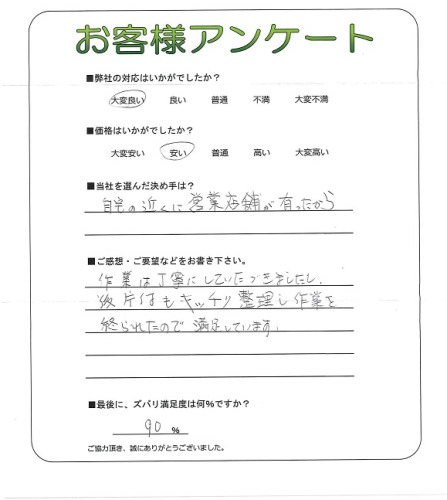 お客様アンケート
■弊社の対応はいかがでしたか？
大変良い 良い 普通 不満 大変不満
■価格はいかがでしたか？
大変安い 安い 普通 高い 大変高い
■当社を選んだ決め手は？
自宅の近くに営業店舗が有ったから
■ご感想・ご要望などをお書き下さい。
作業は丁寧にしていただきましたし、
後片付もキッチリ整理し作業を
終られたので満足しています。
■最後に、ズバリ満足度は何%ですか？
90 %
ご協力頂き、誠にありがとうございました。